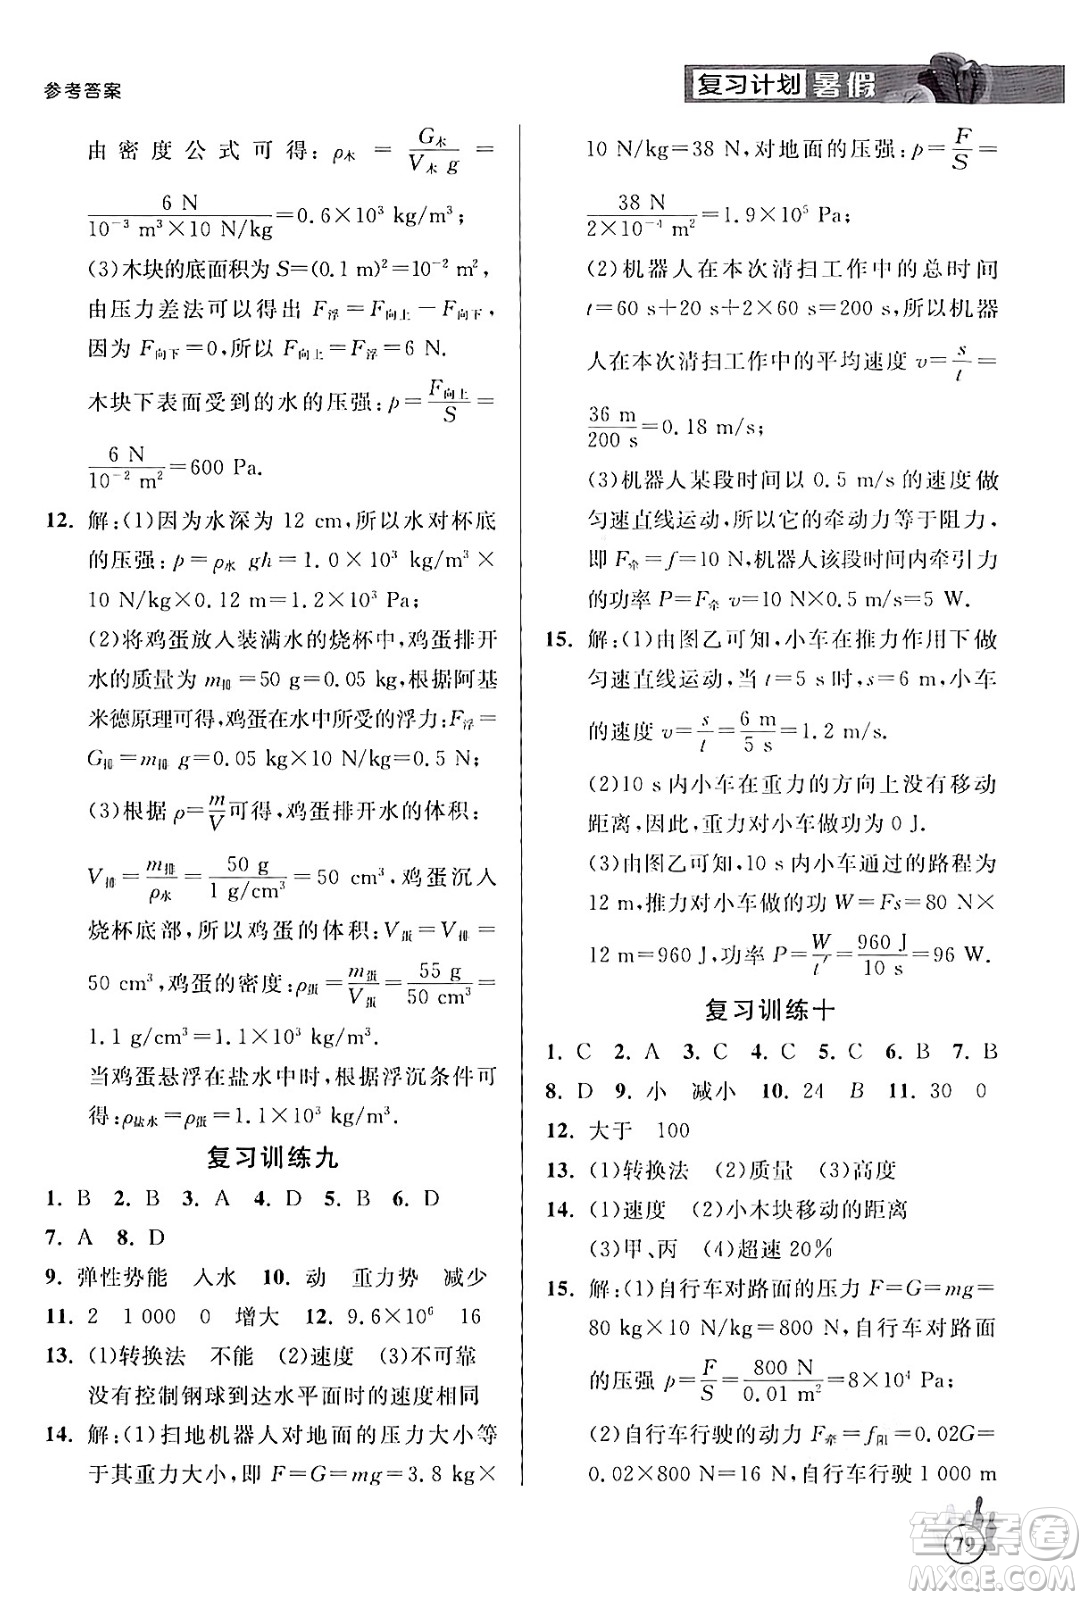 参考答案
复习计划 暑假
由密度公式可得：ρ木 = G木/(V木 g) =
6 N/(10⁻³ m³×10 N/kg)=0.6×10³ kg/m³；
(3)木块的底面积为 S=(0.1 m)²=10⁻² m²，
由压力差法可以得出 F浮=F向上－F向下，
因为 F向下=0，所以 F向上=F浮=6 N.
木块下表面受到的水的压强：p=F向上/S=
6 N/(10⁻² m²)=600 Pa.
12. 解：(1)因为水深为 12 cm，所以水对杯底
的压强：p=ρ水 gh=1.0×10³ kg/m³×
10 N/kg×0.12 m=1.2×10³ Pa；
(2)将鸡蛋放入装满水的烧杯中，鸡蛋排开
水的质量为 m排=50 g=0.05 kg，根据阿基
米德原理可得，鸡蛋在水中所受的浮力：F浮=
G排=m排 g=0.05 kg×10 N/kg=0.5 N；
(3)根据 ρ=m/V可得，鸡蛋排开水的体积：
V排=m排/ρ水=50 g/(1 g/cm³)=50 cm³，鸡蛋沉入
烧杯底部，所以鸡蛋的体积：V蛋=V排=
50 cm³，鸡蛋的密度：ρ蛋=m蛋/V蛋=55 g/50 cm³=
1.1 g/cm³=1.1×10³ kg/m³.
当鸡蛋悬浮在盐水中时，根据浮沉条件可
得：ρ盐水=ρ蛋=1.1×10³ kg/m³.
复习训练九
1. B 2. B 3. A 4. D 5. B 6. D
7. A 8. D
9. 弹性势能 入水 10. 动 重力势 减少
11. 2 1 000 0 增大 12. 9.6×10⁶ 16
13. (1)转换法 不能 (2)速度 (3)不可靠
没有控制钢球到达水平面时的速度相同
14. 解：(1)扫地机器人对地面的压力大小等
于其重力大小，即 F=G=mg=3.8 kg×
10 N/kg=38 N，对地面的压强：p=F/S=
38 N/(2×10⁻⁴ m²)=1.9×10⁵ Pa；
(2)机器人在本次清扫工作中的总时间
t=60 s+20 s+2×60 s=200 s，所以机器
人在本次清扫工作中的平均速度 v=s/t=
36 m/200 s=0.18 m/s；
(3)机器人某段时间以 0.5 m/s 的速度做
匀速直线运动，所以它的牵动力等于阻力，
即 F牵=f=10 N，机器人该段时间内牵引力
的功率 P=F牵 v=10 N×0.5 m/s=5 W.
15. 解：(1)由图乙可知，小车在推力作用下做
匀速直线运动，当 t=5 s 时，s=6 m，小车
的速度 v=s/t=6 m/5 s=1.2 m/s.
(2)10 s 内小车在重力的方向上没有移动
距离，因此，重力对小车做功为 0 J.
(3)由图乙可知，10 s 内小车通过的路程为
12 m，推力对小车做的功 W=Fs=80 N×
12 m=960 J，功率 P=W/t=960 J/10 s=96 W.
复习训练十
1. C 2. A 3. C 4. C 5. C 6. B 7. B
8. D 9. 小 减小 10. 24 B 11. 30 0
12. 大于 100
13. (1)转换法 (2)质量 (3)高度
14. (1)速度 (2)小木块移动的距离
(3)甲、丙 (4)超速 20%
15. 解：(1)自行车对路面的压力 F=G=mg=
80 kg×10 N/kg=800 N，自行车对路面
的压强 p=F/S=800 N/0.01 m²=8×10⁴ Pa；
(2)自行车行驶的动力 F牵=f阻=0.02G=
0.02×800 N=16 N，自行车行驶 1 000 m
79
答案卷
MXQE.COM